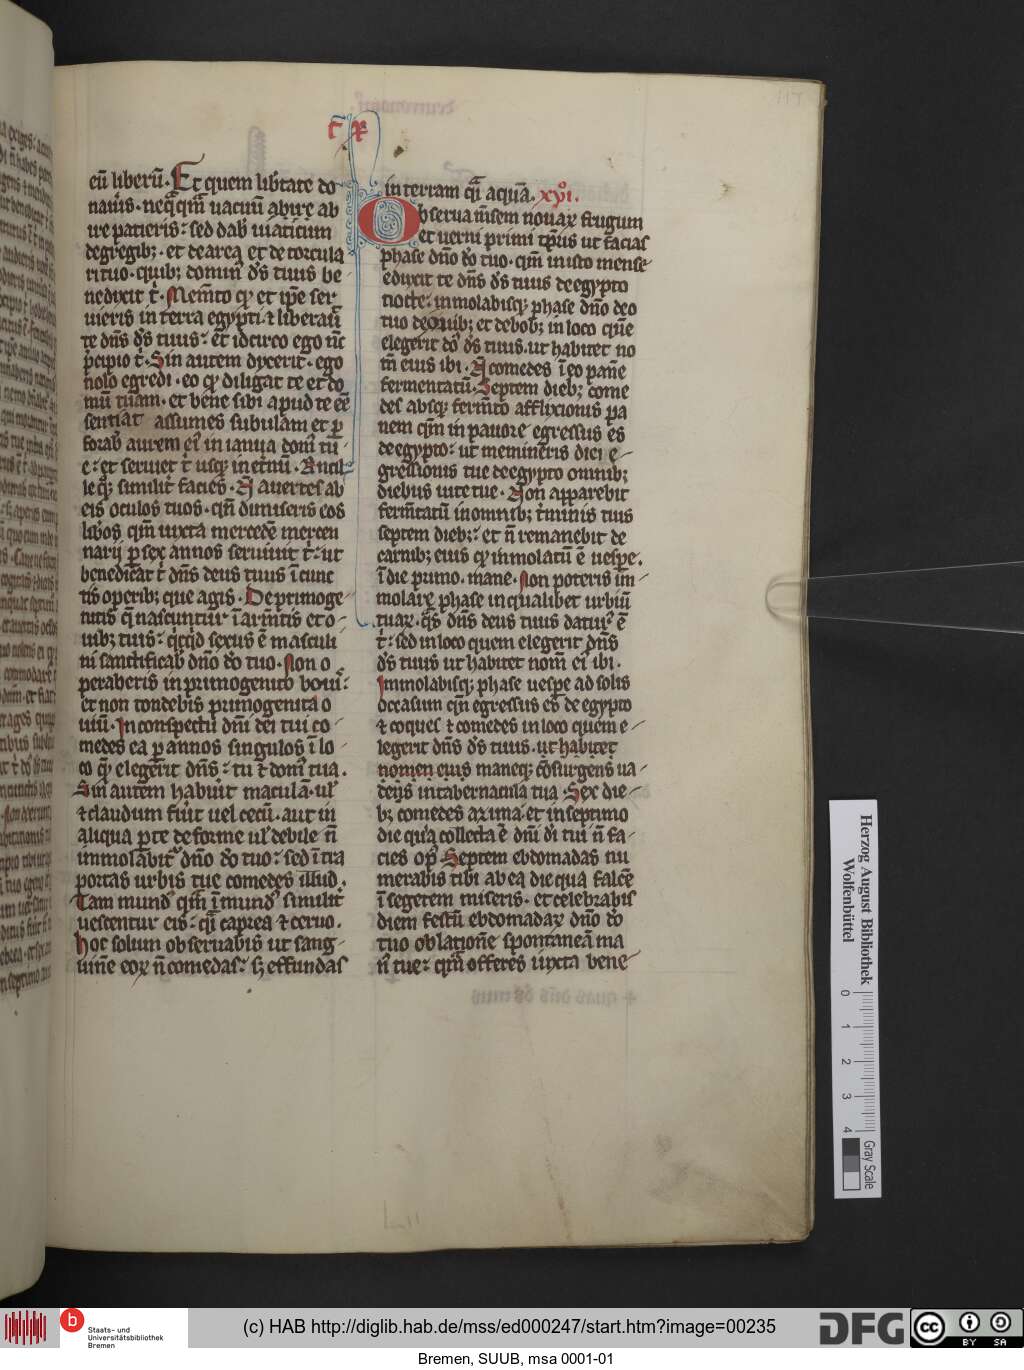 eū liberū. Et quem lib̄tate do
nau̾is. neq̄q̄m̄ uacuū abire ab
ire patieris: sed dab̾ uiaticum
degregib; et dearea et de torcula
ri tuo. quib; domin̾ d̄s tuus be
nedixit t̾. Mem̄to qꝫ et ip̄e ser
uieris in terra egypti. ⁊ liberau̾
te dn̄s d̄s tuus: et idcirco ego nc̄
p̄cipio t̾. Sin autem dixerit. ego
nolo egredi. eo qꝫ diligat te et do
mū tuam. et bene sibi apud te eē
sentiat assumes subulam et ꝑ
forab̾ aurem ei̾ in ianua dom̾ tu
e: et seruiet t̾ usqꝫ in et̾nū. Ancil
le qꝫ similit̾ facies. Ñ auertes ab
eis oculos tuos. qn̄ dimiseris eos
lib̾os qm̄ iuxta mercedē mercen
narij ꝑ sex annos seruiuit t̾: ut
benedicat t̾ dn̄s deus tuus ī cunc
tis operib; que agis. De primoge
nitis q̄ nascuntur ī armētis et o
uib; tuis: qc̄qd sexus ē masculi
ni sanctificab̾ dn̄o d̄o tuo. Non o
peraberis in primogenito boui̾:
et non tondebis primogenita o
uiū. In conspectu dn̄i dei tui co
medes ea ꝑ annos singulos ī lo
co qꝫ elegerit dn̄s: tu ⁊ dom̾ tua.
Sin autem habuit maculā. ul̾
⁊ claudum fuit uel cecū. aut in
aliqua ꝑte deforme ul̾ debile ñ
immolabit̾ dn̄o d̄o tuo: sed ī tra
portas urbis tue comedes illud.
Tam mund̾ qm̄ ī mund̾ similit̾
uescentur eis: q̄i caprea ⁊ ceruo.
hoc solum obseruabis ut sang
uinē eoꝝ ñ comedas: sꝫ effundas
c̄ R
in terram q̄i aquā. xvi.
Obserua mēsem nouaꝝ frugum
et uerni primi tp̄ris ut facias
phase dn̄o d̄o tuo. qm̄ in isto mense
eduxit te dn̄s d̄s tuus de egypto
nocte: inmolabisqꝫ phase dn̄o deo
tuo de ouib; et de bob; in loco quē
elegerit do̾ d̄s tuus. ut habitet no
m̄ eius ibi. Ñ comedes ī eo panē
fermentatū. Septem dieb; come
des absqꝫ ferm̄to afflixionis pa
nem qm̄ in pauore egressus es
de egypto: ut memineris diei e
gressionis tue de egypto omnib;
diebus uite tue. Non apparebit
ferm̄tatū in omnib; t̾minis tuis
septem dieb;: et ñ remanebit de
carnib; eius qꝫ inmolatū ē uespe.
ī die primo. mane. Non poteris im
molare phase in qualibet urbiū
tuaꝝ. q̄s dn̄s deus tuus datur̾ ē
t̾: sed in loco quem elegerit dn̄s
d̄s tuus ut habitet nom̄ ei̾ ibi.
Immolabisqꝫ phase uespe ad solis
occasum qn̄ egressus es de egypto
⁊ coques ⁊ comedes in loco quem e
legerit dn̄s d̄s tuus. ut habitet
nomen eius maneqꝫ cōsurgens ua
des in tabernacula tua. Sex die
b; comedes azima. et in septimo
die quia collecta ē dn̄i di̾ tui ñ fa
cies op̾. Septem ebdomadas nu
merabis tibi ab ea die qua falcē
ī segetem miseris. et celebrabis
diem festū ebdomadaꝝ dn̄o d̄o
tuo oblationē spontaneā ma
n̾ tue: qm̄ offeres iuxta bene
Herzog August Bibliothek
Wolfenbüttel
0 1 2 3 4
Gray Scale
b Staats- und
Universitätsbibliothek
Bremen
(c) HAB http://diglib.hab.de/mss/ed000247/start.htm?image=00235
DFG
cc BY SA
Bremen, SUUB, msa 0001-01